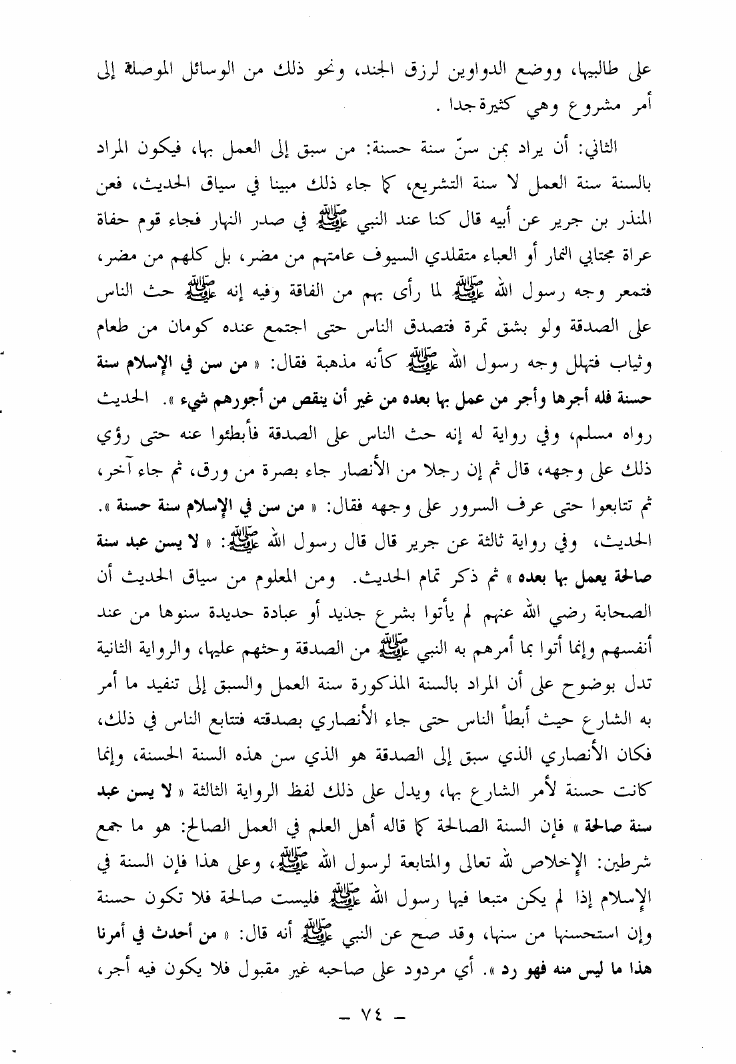 على طالبيها، ووضع الدواوين لرزق الجند، ونحو ذلك من الوسائل الموصلة إلى
أمر مشروع وهي كثيرة جدا .
الثاني: أن يراد بمن سنّ سنة حسنة: من سبق إلى العمل بها، فيكون المراد
بالسنة سنة العمل لا سنة التشريع، كما جاء ذلك مبينا في سياق الحديث، فعن
المنذر بن جرير عن أبيه قال كنا عند النبي ﷺ في صدر النهار فجاء قوم حفاة
عراة مجتابي النمار أو العباء متقلدي السيوف عامتهم من مضر، بل كلهم من مضر،
فتمعر وجه رسول الله ﷺ لما رأى بهم من الفاقة وفيه إنه ﷺ حث الناس
على الصدقة ولو بشق تمرة فتصدق الناس حتى اجتمع عنده كومان من طعام
وثياب فتهلل وجه رسول الله ﷺ كأنه مذهبة فقال: « من سن في الإسلام سنة
حسنة فله أجرها وأجر من عمل بها بعده من غير أن ينقص من أجورهم شيء ». الحديث
رواه مسلم، وفي رواية له إنه حث الناس على الصدقة فأبطئوا عنه حتى رؤي
ذلك على وجهه، قال ثم إن رجلا من الأنصار جاء بصرة من ورق، ثم جاء آخر،
ثم تتابعوا حتى عرف السرور على وجهه فقال: « من سن في الإسلام سنة حسنة ».
الحديث، وفي رواية ثالثة عن جرير قال قال رسول الله ﷺ: « لا يسن عبد سنة
صالحة يعمل بها بعده » ثم ذكر تمام الحديث. ومن المعلوم من سياق الحديث أن
الصحابة رضي الله عنهم لم يأتوا بشرع جديد أو عبادة حديدة سنوها من عند
أنفسهم وإنما أتوا بما أمرهم به النبي ﷺ من الصدقة وحثهم عليها، والرواية الثانية
تدل بوضوح على أن المراد بالسنة المذكورة سنة العمل والسبق إلى تنفيد ما أمر
به الشارع حيث أبطأ الناس حتى جاء الأنصاري بصدقته فتتابع الناس في ذلك،
فكان الأنصاري الذي سبق إلى الصدقة هو الذي سن هذه السنة الحسنة، وإنما
كانت حسنة لأمر الشارع بها، ويدل على ذلك لفظ الرواية الثالثة « لا يسن عبد
سنة صالحة » فإن السنة الصالحة كما قاله أهل العلم في العمل الصالح: هو ما جمع
شرطين: الإخلاص لله تعالى والمتابعة لرسول الله ﷺ، وعلى هذا فإن السنة في
الإسلام إذا لم يكن متبعا فيها رسول الله ﷺ فليست صالحة فلا تكون حسنة
وإن استحسنها من سنها، وقد صح عن النبي ﷺ أنه قال: « من أحدث في أمرنا
هذا ما ليس منه فهو رد ». أي مردود على صاحبه غير مقبول فلا يكون فيه أجر،
– ٧٤ –